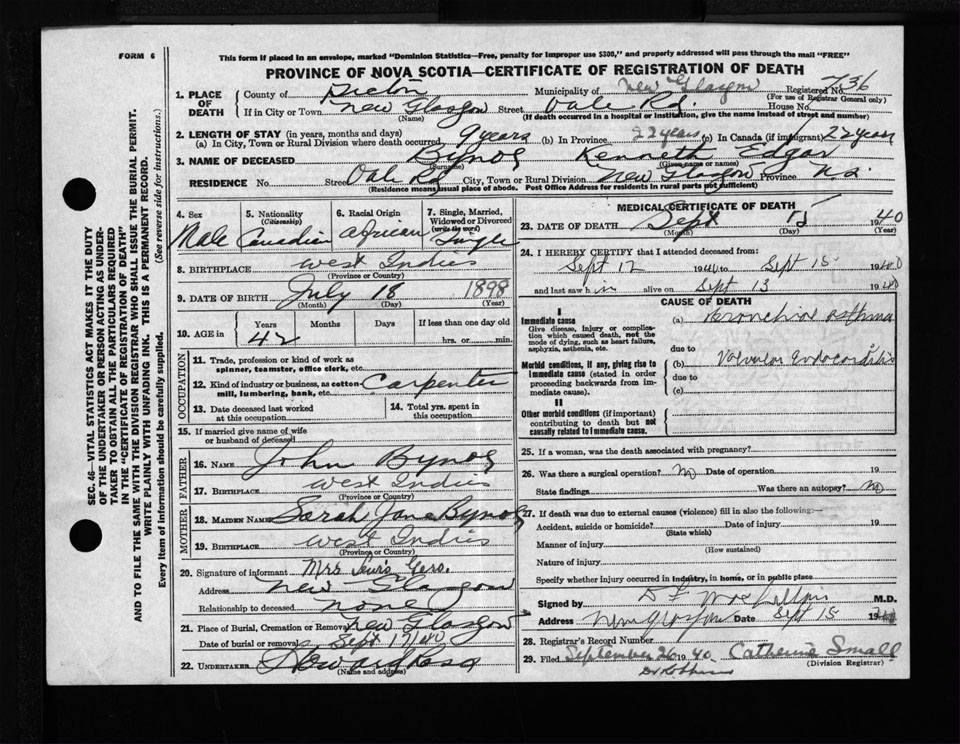 FORM 6
This form if placed in an envelope, marked "Dominion Statistics—Free, penalty for improper use $300," and properly addressed will pass through the mail "FREE"
PROVINCE OF NOVA SCOTIA—CERTIFICATE OF REGISTRATION OF DEATH
SEC. 46—VITAL STATISTICS ACT MAKES IT THE DUTY
OF THE UNDERTAKER OR PERSON ACTING AS UNDER-
TAKER TO OBTAIN ALL THE PARTICULARS REQUIRED
IN THE "CERTIFICATE OF REGISTRATION OF DEATH"
AND TO FILE THE SAME WITH THE DIVISION REGISTRAR WHO SHALL ISSUE THE BURIAL PERMIT.
WRITE PLAINLY WITH UNFADING INK. THIS IS A PERMANENT RECORD.
Every item of information should be carefully supplied. (See reverse side for instructions.)
1. PLACE OF DEATH County of Pictou Municipality of New Glasgow Registered No. 736
(For use of Registrar General only)
If in City or Town New Glasgow Street Vale Rd. House No.
(If death occurred in a hospital or institution, give the name instead of street and number)
2. LENGTH OF STAY (in years, months and days)
(a) In City, Town or Rural Division where death occurred 9 years (b) In Province 22 years (c) In Canada (if immigrant) 22 years
3. NAME OF DECEASED Bynoe Kenneth Edgar
(Surname) (Given name or names)
RESIDENCE No. Street Vale Rd City, Town or Rural Division New Glasgow Province N.S.
(Residence means usual place of abode. Post Office Address for residents in rural parts not sufficient)
4. Sex Male
5. Nationality (Citizenship) Canadian
6. Racial Origin African
7. Single, Married, Widowed or Divorced (write the word) Single
8. BIRTHPLACE West Indies
(Province or Country)
9. DATE OF BIRTH July 18 1898
(Month) (Day) (Year)
10. AGE in Years 42 Months Days If less than one day old hrs. or min.
OCCUPATION
11. Trade, profession or kind of work as spinner, teamster, office clerk, etc.
12. Kind of industry or business, as cotton-mill, lumbering, bank, etc. Carpenter
13. Date deceased last worked at this occupation
14. Total yrs. spent in this occupation
15. If married give name of wife or husband of deceased
FATHER
16. NAME John Bynoe
17. BIRTHPLACE West Indies
(Province or Country)
MOTHER
18. MAIDEN NAME Sarah Jane Bynoe
19. BIRTHPLACE West Indies
(Province or Country)
20. Signature of informant Mrs Lewis Gero.
Address New Glasgow
Relationship to deceased none
21. Place of Burial, Cremation or Removal New Glasgow
Date of burial or removal Sept 17/40
22. UNDERTAKER Howard
(Name and address)
MEDICAL CERTIFICATE OF DEATH
23. DATE OF DEATH Sept 15 1940
(Month) (Day) (Year)
24. I HEREBY CERTIFY that I attended deceased from:
Sept 12 1940 to Sept 15 1940
and last saw him alive on Sept 13 1940
CAUSE OF DEATH
I
Immediate cause
Give disease, injury or complication which caused death, not the mode of dying, such as heart failure, asphyxia, asthenia, etc.
(a) Bronchial Asthma
due to
Morbid conditions, if any, giving rise to immediate cause (stated in order proceeding backwards from immediate cause).
(b) Valvular Endocarditis
due to
(c)
II
Other morbid conditions (if important) contributing to death but not causally related to immediate cause.
25. If a woman, was the death associated with pregnancy?
26. Was there a surgical operation? No Date of operation 19
State findings Was there an autopsy? No
27. If death was due to external causes (violence) fill in also the following:—
Accident, suicide or homicide? Date of injury 19
(State which)
Manner of injury
(How sustained)
Nature of injury
Specify whether injury occurred in industry, in home, or in public place
Signed by M.D.
Address New Glasgow Date Sept 15 19
28. Registrar's Record Number
29. Filed September 26 1940 Catherine Small
(Division Registrar)